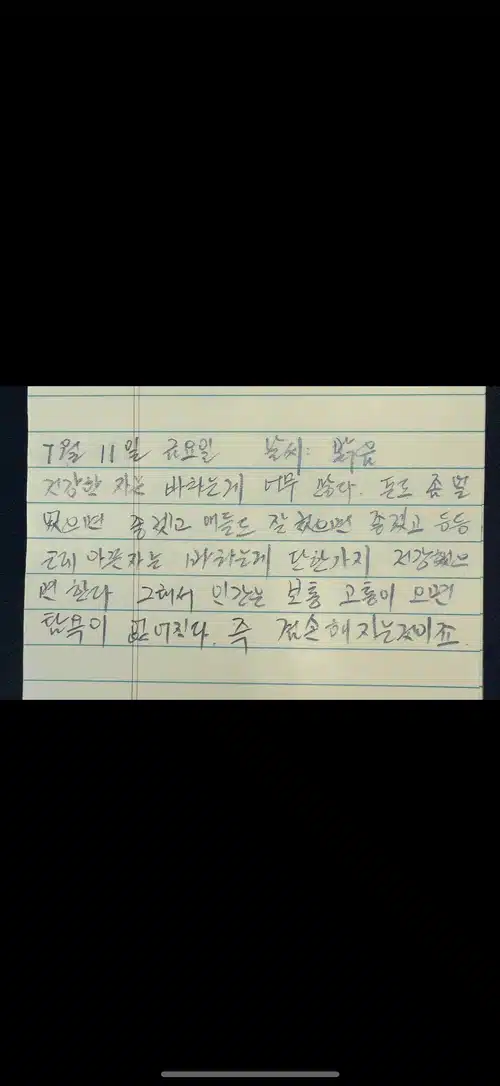 7월 11일 금요일 날씨: 맑음
건강한 자는 바라는게 너무 많다. 돈도 좀 벌
었으면 좋겠고 애들도 잘 됐으면 좋겠고 등등
근데 아픈자는 바라는게 단한가지 건강했으
면 한다 그래서 인간은 보통 고통이 오면
탐욕이 없어진다. 즉 겸손해지는것이죠.